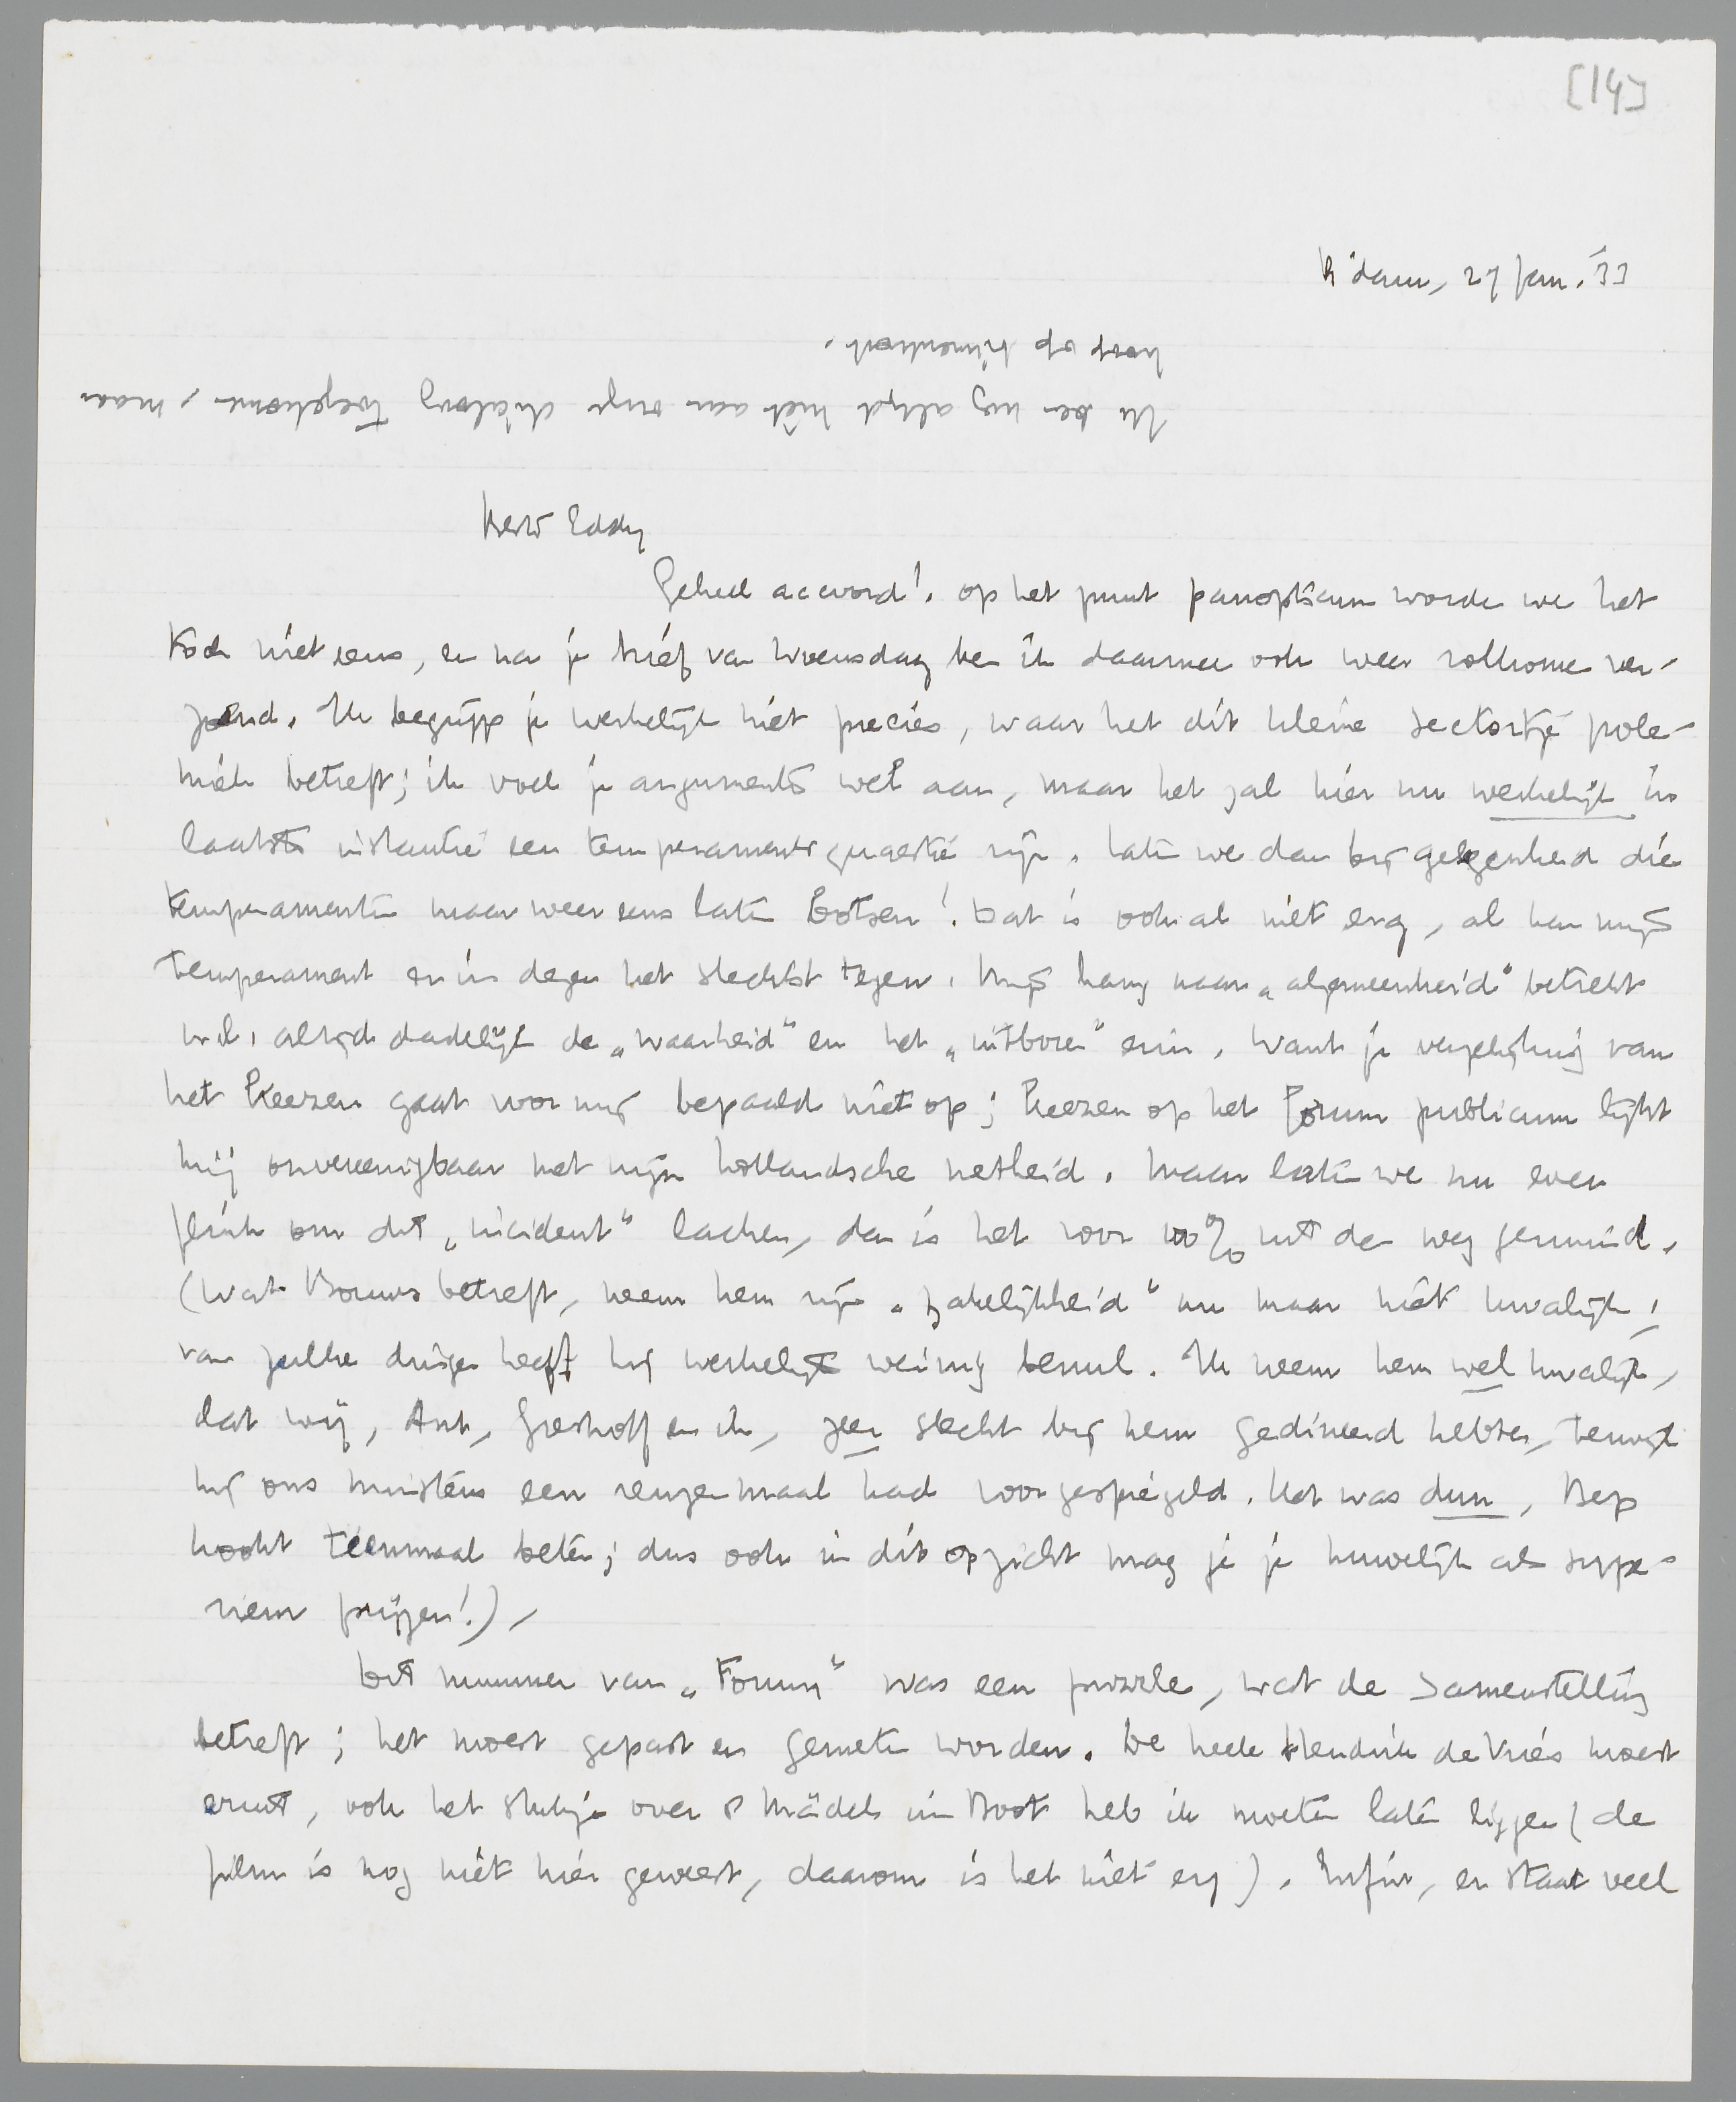 [14]
R'dam, 27 Jan. '33
Ik ben nog altijd niet aan onze dialoog toegekomen, maar
hoop op binnenkort.
Beste Eddy
Geheel accoord! Op het punt panopticum worden we het
toch niet eens, en na je brief van Woensdag ben ik daarmee ook weer volkomen ver-
zoend. Ik begrijp je werkelijk niet precies, waar het dit kleine sectortje pole-
miek betreft; ik voel je argumenten wel aan, maar het zal hier nu werkelijk in
laatste instantie een temperamentsquaestie zijn. Laten we dan bij gelegenheid die
temperamenten maar weer eens laten botsen! Dat is ook al niet erg, al kan mijn
temperament er in dezen het slechtst tegen. Mijn hang naar „algemeenheid" betrekt
nl. altijd dadelijk de „waarheid" en het „uitboren" erin. Want je vergelijking van
het keezen gaat voor mij bepaald niet op; keezen op het forum publicum lijkt
mij onvereenigbaar met mijn hollandsche netheid. Maar laten we nu even
flink om dit „incident" lachen, dan is het voor 100% uit den weg geruimd.
(Wat Bouws betreft, neem hem zijn „zakelijkheid" nu maar niet kwalijk;
van zulke dingen heeft hij werkelijk weinig benul. Ik neem hem wel kwalijk,
dat wij, Ant, Greshoff en ik, zeer slecht bij hem gedineerd hebben, terwijl
hij ons minstens een reuzenmaal had voorgespiegeld. Het was dun, Bep
kookt tienmaal beter; dus ook in dit opzicht mag je je huwelijk als suppe-
rieur prijzen!),
Dit nummer van „Forum" was een puzzle, wat de samenstelling
betreft; het moest gepast en gemeten worden. De heele Hendrik de Vries moest
eruit, ook het stukje over 8 Mädels im Boot heb ik moeten laten liggen (de
film is nog niet hier geweest, daarom is het niet erg). Enfin, er staat veel